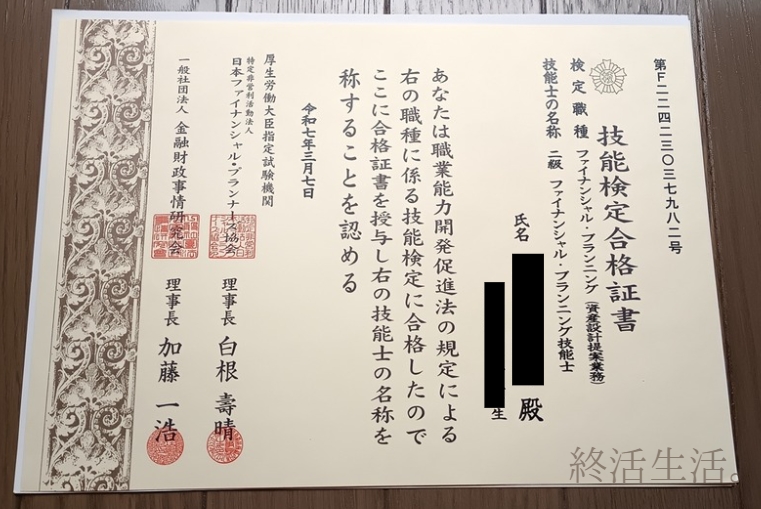 第F二二四二三〇三七九八二号
技能検定合格証書
検定職種 ファイナンシャル・プランニング(資産設計提案業務)
技能士の名称 二級 ファイナンシャル・プランニング技能士
氏名 殿
生
あなたは職業能力開発促進法の規定による
右の職種に係る技能検定に合格したので
ここに合格証書を授与し右の技能士の名称を
称することを認める
令和七年三月七日
厚生労働大臣指定試験機関
特定非営利活動法人
日本ファイナンシャル・プランナーズ協会 理事長 白根 壽晴
一般社団法人 金融財政事情研究会 理事長 加藤 一浩
終活生活。